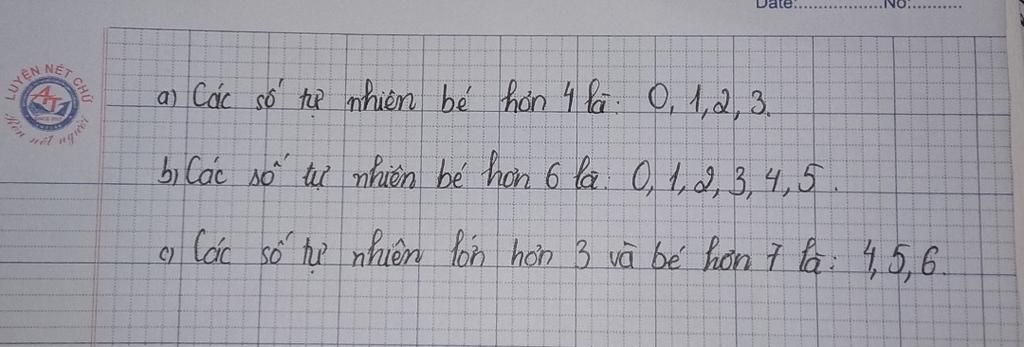 Date:..................No:............
LUYỆN NÉT CHỮ
AT
Rèn nết người
a) Các số tự nhiên bé hơn 4 là: 0, 1, 2, 3.
b) Các số tự nhiên bé hơn 6 là: 0, 1, 2, 3, 4, 5.
c) Các số tự nhiên lớn hơn 3 và bé hơn 7 là: 4, 5, 6.